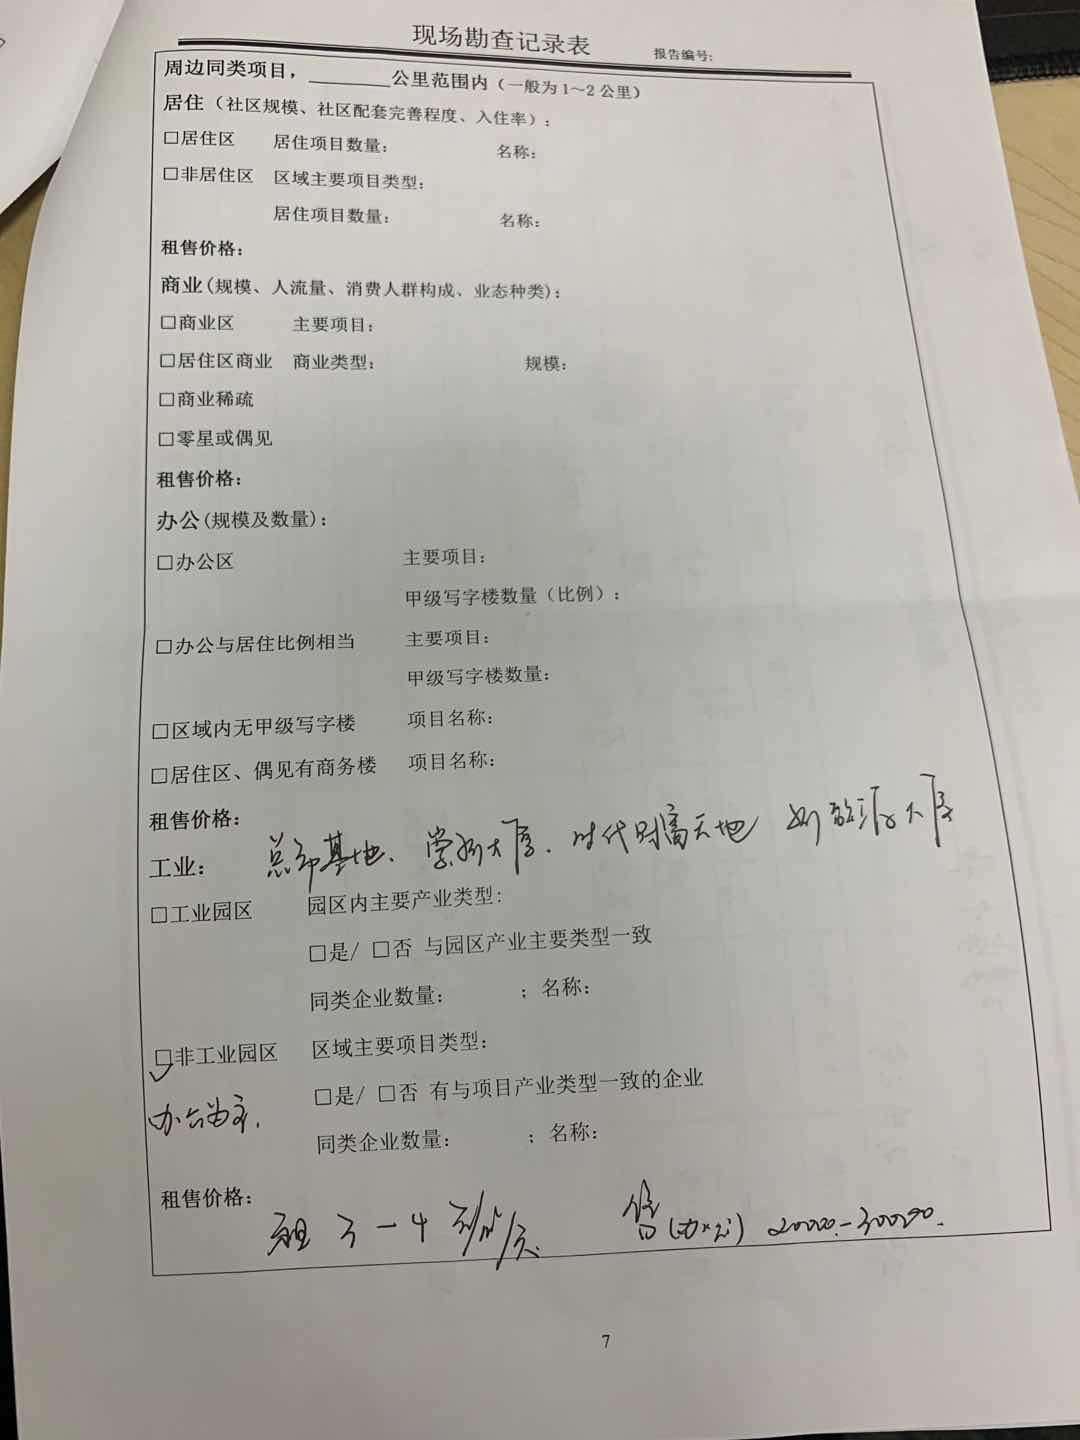 现场勘查记录表 报告编号:
周边同类项目，________公里范围内（一般为1～2公里）
居住（社区规模、社区配套完善程度、入住率）:
□居住区 居住项目数量: 名称:
□非居住区 区域主要项目类型:
居住项目数量: 名称:
租售价格:
商业(规模、人流量、消费人群构成、业态种类):
□商业区 主要项目:
□居住区商业 商业类型: 规模:
□商业稀疏
□零星或偶见
租售价格:
办公(规模及数量):
□办公区 主要项目:
甲级写字楼数量（比例）:
□办公与居住比例相当 主要项目:
甲级写字楼数量:
□区域内无甲级写字楼 项目名称:
□居住区、偶见有商务楼 项目名称:
租售价格:
工业: 总部基地、大厦、时代财富天地 大厦
□工业园区 园区内主要产业类型:
□是/ □否 与园区产业主要类型一致
同类企业数量: ；名称:
□非工业园区 区域主要项目类型:
□是/ □否 有与项目产业类型一致的企业
办公为主.
同类企业数量: ；名称:
租售价格:
租 3－4 元/㎡/天. 售(办公) 20000－30000.
7